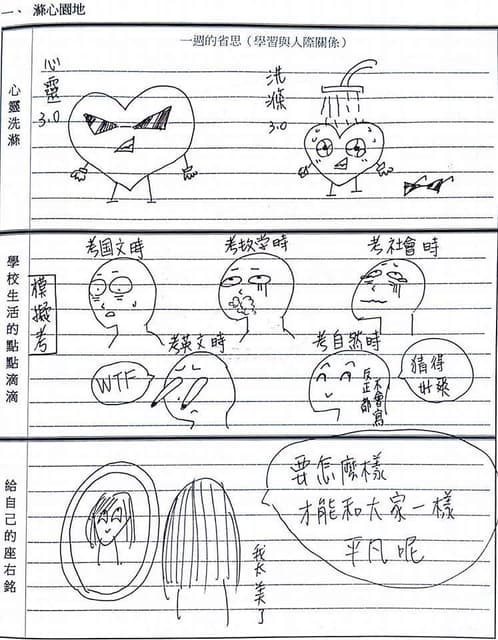 一、滌心園地
一週的省思(學習與人際關係)
心靈洗滌
心靈3.0
洗滌3.0
學校生活的點點滴滴
模擬考
考国文時
考数学時
考社會時
考英文時
WTF
考自然時
反正都
不會寫
猜得
好爽
給自己的座右銘
我太美了
要怎麼樣
才能和大家一樣
平凡呢